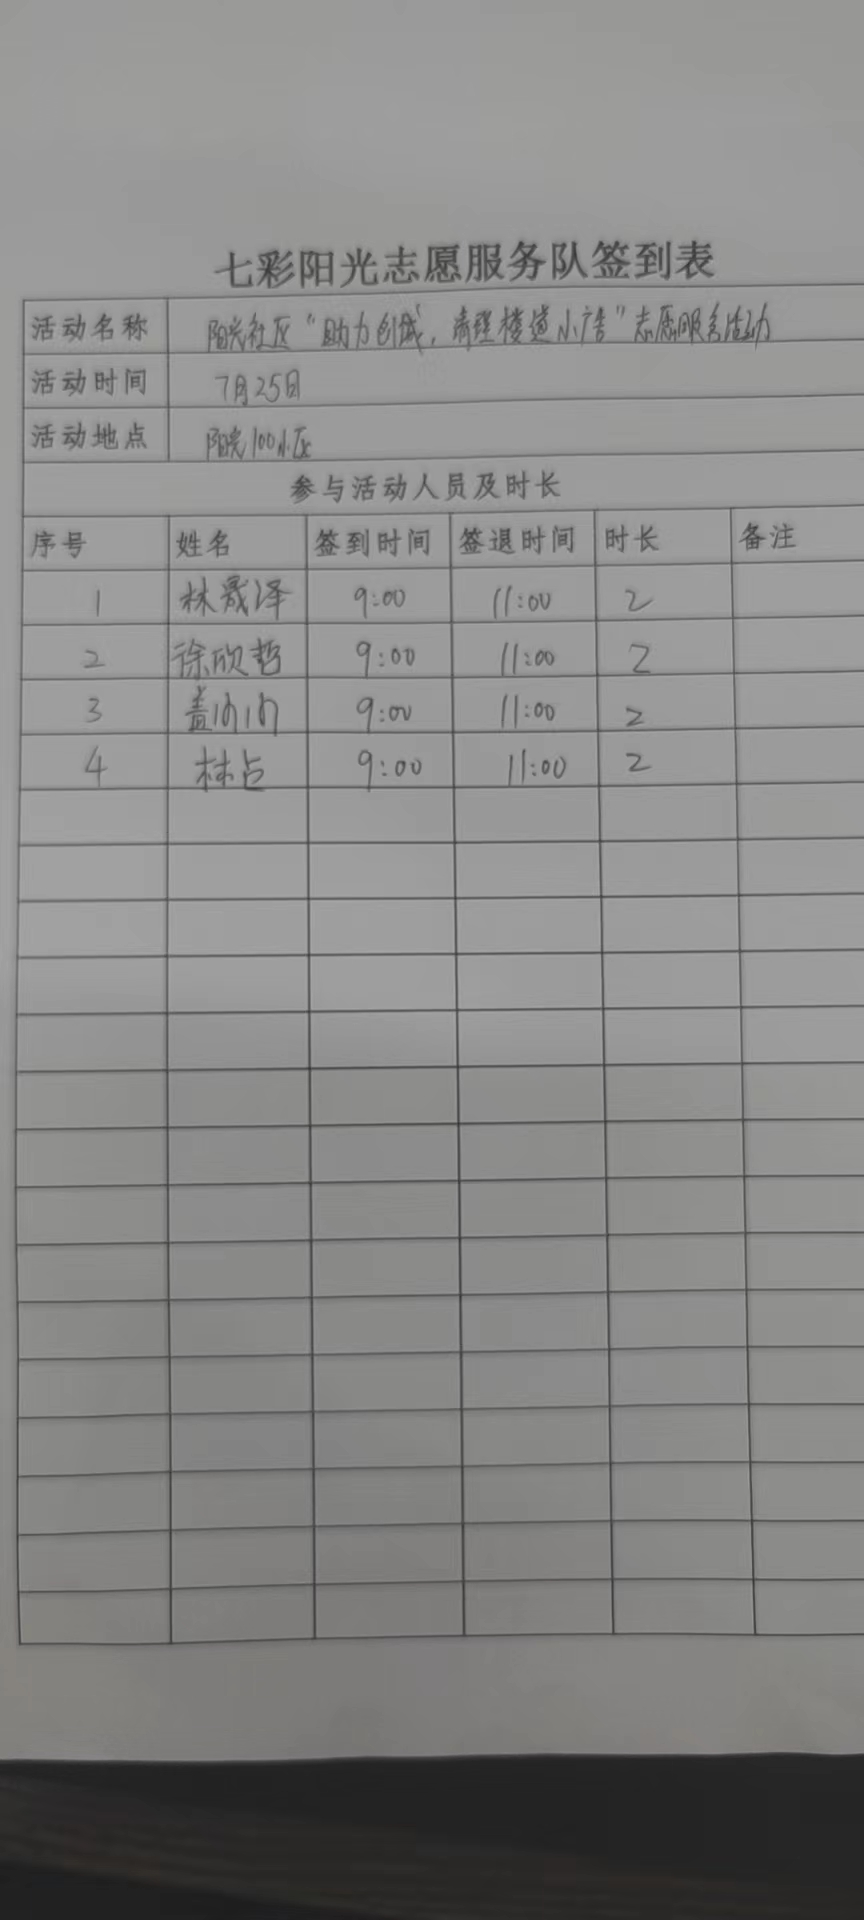 七彩阳光志愿服务队签到表
活动名称 阳光社区“助力创城,清理楼道小广告”志愿服务活动
活动时间 7月25日
活动地点 阳光100小区
参与活动人员及时长
序号 姓名 签到时间 签退时间 时长 备注
1 林晟泽 9:00 11:00 2
2 徐欣哲 9:00 11:00 2
3 盖 9:00 11:00 2
4 林占 9:00 11:00 2